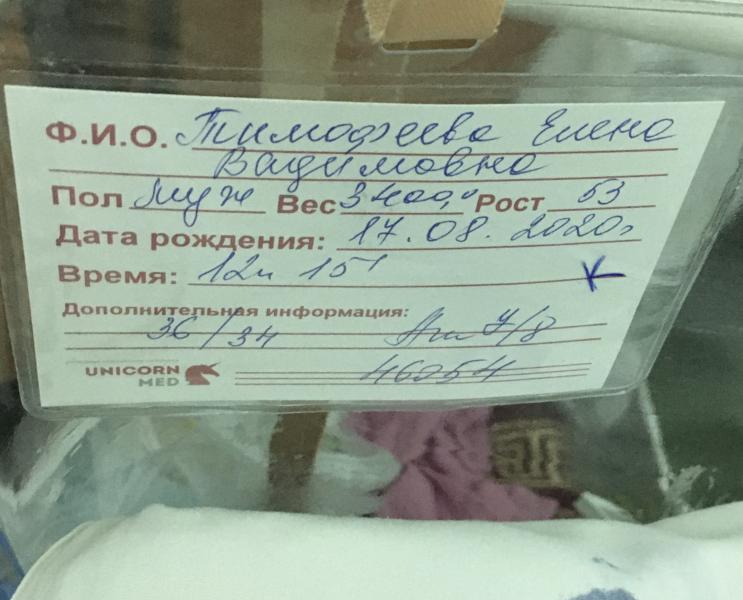 Ф.И.О. Тимофеева Елена
Вадимовна
Пол муж Вес 3400,0 Рост 53
Дата рождения: 17.08.2020г
Время: 12ч 15'
Дополнительная информация:
36/34 Апг 7/8
UNICORN
MED
46054